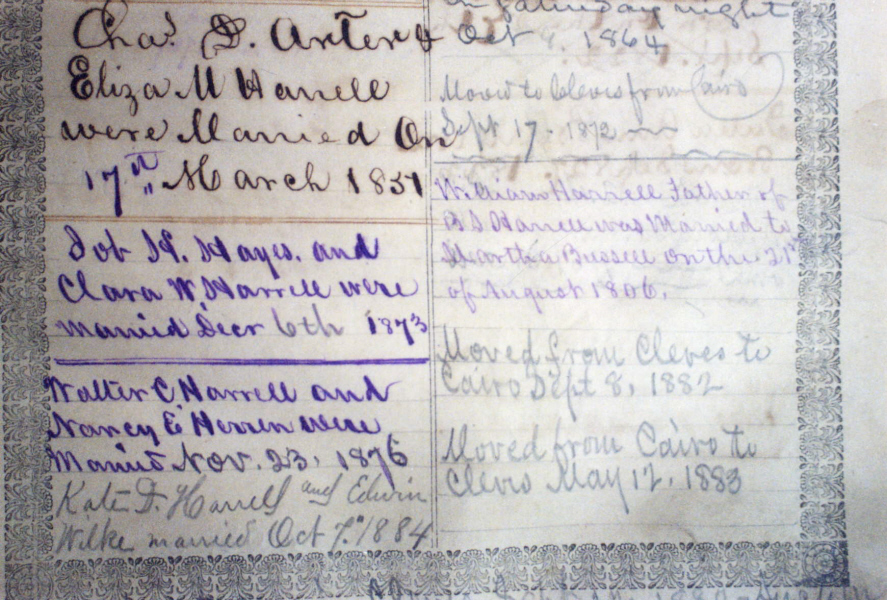 Chas. D. Arter &
Eliza M Harrell
were Married On
17th March 1851
Job H. Hayes. and
Clara W. Harrell were
married Decr 6th 1873
Walter C Harrell and
Nancy E Herren were
Married Nov. 23, 1876
Kate F. Harrell and Edwin
Wilke married Oct 7th 1884
on Saturday night
Oct 8, 1864
Moved to Cleves from Cairo
Sept 17. 1872
William Harrell Father of
B S Harrell was Married to
Martha Bussell on the 21st
of August 1806.
Moved from Cleves to
Cairo Sept 8, 1882
Moved from Cairo to
Cleves May 12, 1883